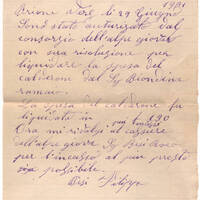 Prione d'Adf. li 29 Giugno 1901
Sono stato autorizato dal
consorzio dell'alpe giovar
con sua risoluzione per
liquidare la spesa del
calderone dal Sg Biondine
romano.
La spesa del caldrone fu
liquidata in
Ora mi rivolgo al cassiere
dell'alpe giovar Sg
per l'incasso al piu presto
sia possibile.
Filippo